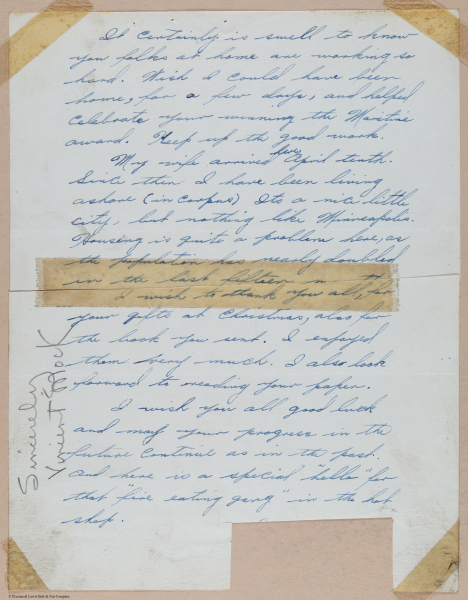 It certainly is swell to know
you folks at home are working so
hard. Wish I could have been
home, for a few days, and helped
celebrate your winning the Maritime
award. Keep up the good work.
My wife arrived here April tenth.
Since then I have been living
ashore (in Corpus) Its a nice little
city, but nothing like Minneapolis.
Housing is quite a problem here, as
the has nearly doubled
in the last fifteen
I wish to thank you all, for
your gifts at Christmas, also for
the book you send. I enjoyed
them very much. I also look
forward to reading your paper.
I wish you all good luck
and may your progress in the
future continue as in the past.
And here is a special "hello" for
that "fire eating gang" in the
shop.
Sincerely
Vincent
© Pioneer & Lewis Bolt & Nut Company